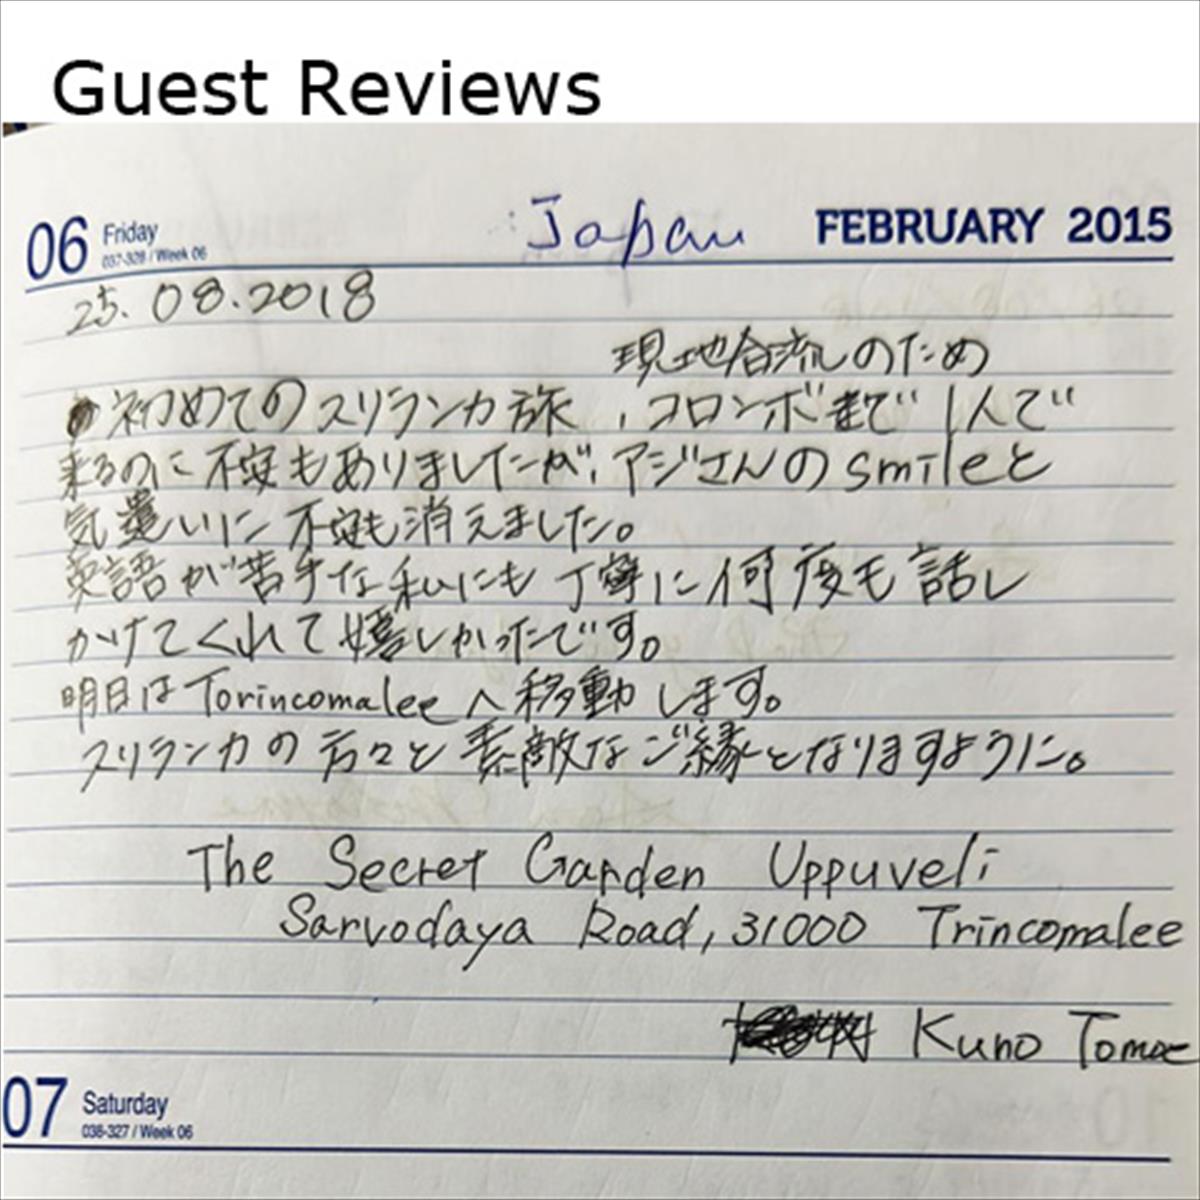 Guest Reviews
06 Friday Japan FEBRUARY 2015
037-328 / Week 06
25.08.2018
現地合流のため
初めてのスリランカ旅、コロンボまで1人で
来るのに不安もありましたが、アジさんのsmileと
気遣いに不安も消えました。
英語が苦手な私にも丁寧に何度も話し
かけてくれて嬉しかったです。
明日はTorincomaleeへ移動します。
スリランカの方々と素敵なご縁となりますように。
The Secret Garden Uppuveli
Sarvodaya Road, 31000 Trincomalee
Kuno Tomoe
07 Saturday
038-327 / Week 06